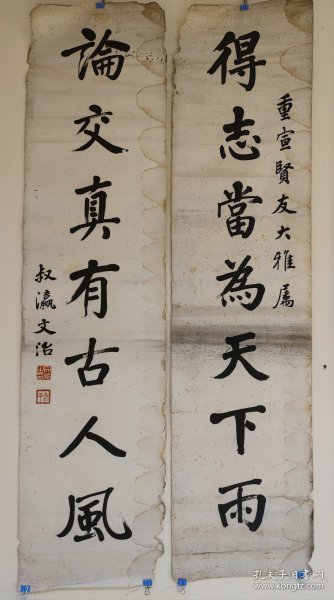 得志當為天下雨
重宣賢友大雅属
論交真有古人風
叔瀛文治
孔夫子旧书网
www.kongfz.com